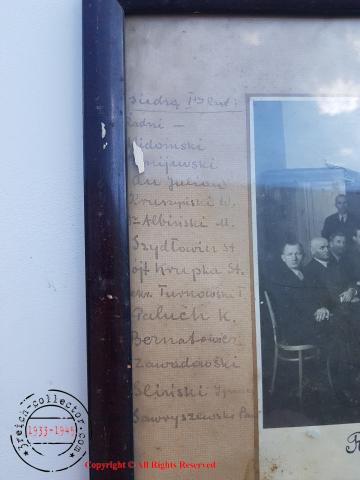 siedzą
Radni —
idomski
mijewski
Julian
Kruszyński W.
Albiński M.
Szydłowier St
ojt Krupka St.
Turnowski T
Paluch K.
Bernatowicz
Zawadowski
Śliński
Sawryszewski
R
reich-collector.com
1933-1945
Copyright © All Rights Reserved